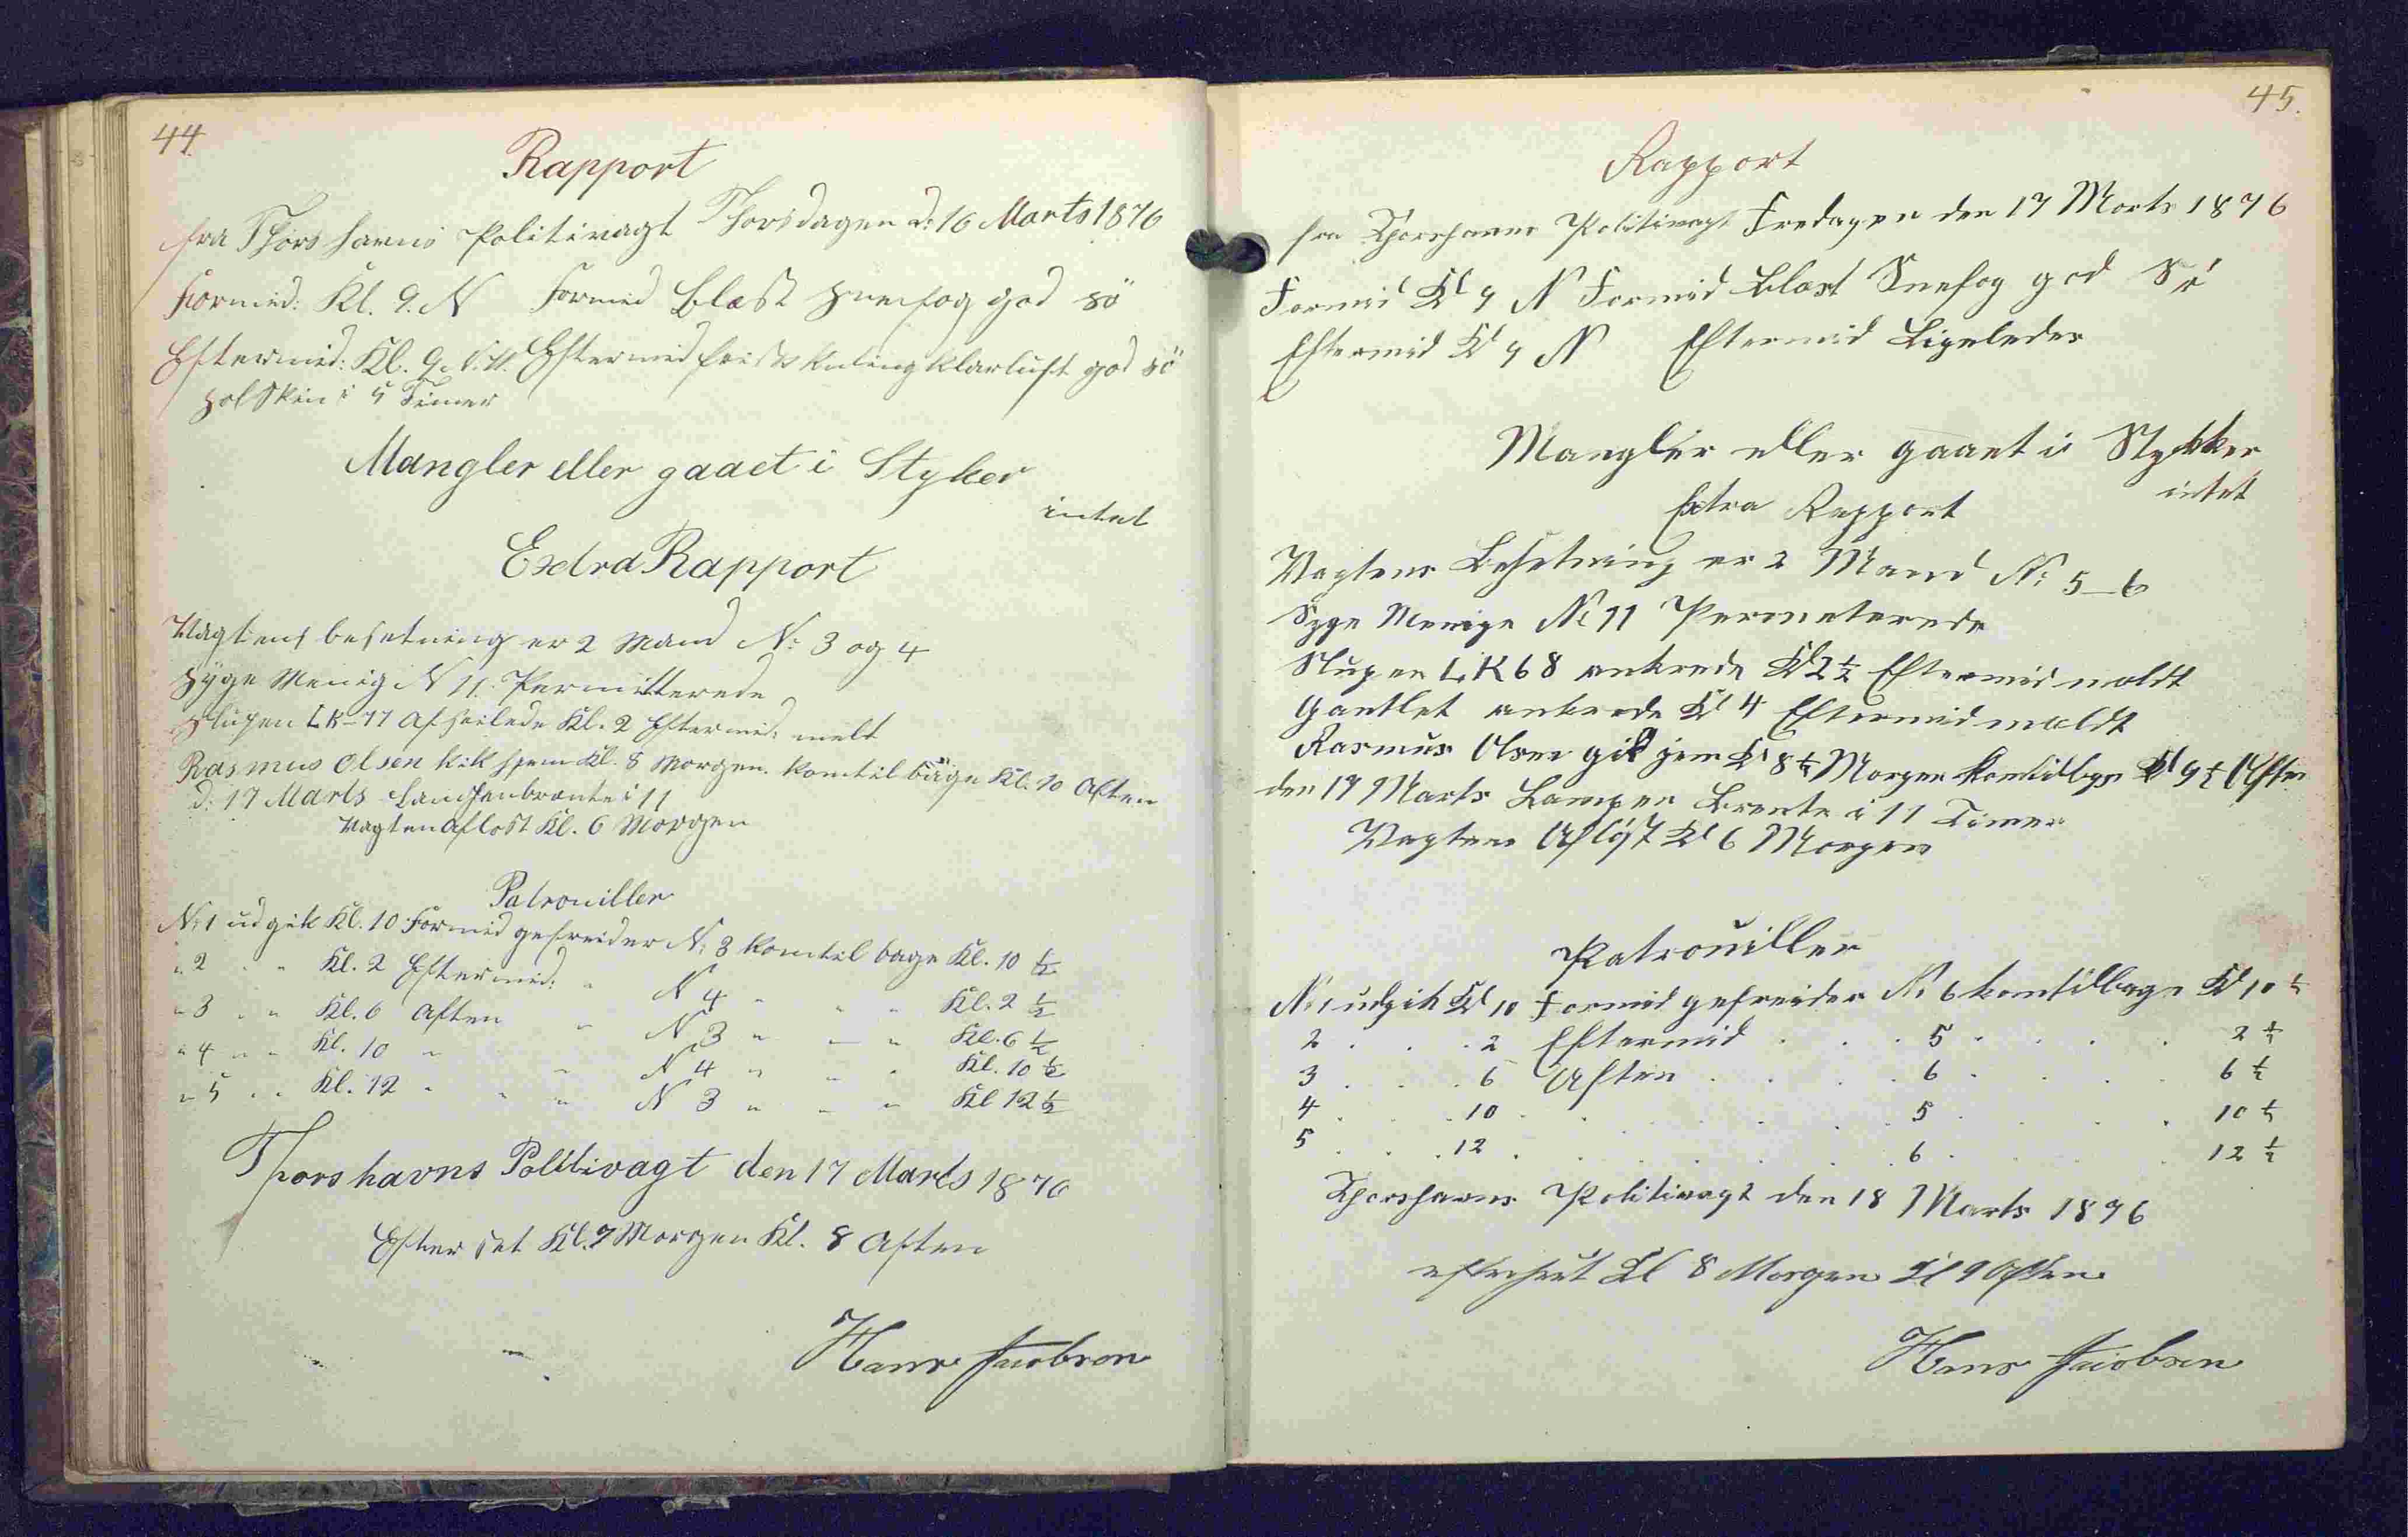 44.
Rapport
fra Thorshavns Politivagt Thorsdagen d: 16 Marts 1876
Formid: Kl. 9. N Formid Blæst Snefog god sö
Eftermid: Kl. 9. N.N. Eftermid frisk Kuling klarluft god sö
Solskin i 5 Timer
Mangler eller gaaet i Styker
intet
Exdra Rapport
Vagtens besetning er 2 Mand No: 3 og 4
Syge Menig N 11. Permitterede
Slupen LK-77 afseilede Kl. 2 Eftermid: melt
Rasmus Olsen kik hjem Kl. 8 Morgen. kom til bage Kl. 10 Aften
d: 17 Marts Lampen brænte i 11
Vagten aflöst Kl. 6 Morgen
Patrouiller
No 1 udgik Kl. 10 Formid gefreider N: 3 kom til bage Kl. 10 ½
" 2 " " Kl. 2 Eftermid: " N 4 " " " Kl. 2 ½
" 3 " " Kl. 6 Aften " N 3 " " " Kl. 6 ½
" 4 " " Kl. 10 " " N 4 " " " Kl. 10 ½
" 5 " " Kl. 12 " " " N 3 " " " Kl 12 ½
Thorshavns Politivagt den 17 Marts 1876
Efter set Kl. 7 Morgen Kl. 8 Aften
Hans Jacobsen
45.
Rapport
fra Thorshavns Politivagt Fredagen den 17 Marts 1876
Formid Kl 9 N Formid Blæst Snefog god Sö
Eftermid Kl 9 N Eftermid Ligeledes
Mangler eller gaaet i Stykker
intet
Extra Rapport
Vagtens Besetning er 2 Mand No: 5-6
Syge Menige No 11 Permeterede
Slupen LK 68 ankrede Kl 2½ Eftermid meldt
Gantlet ankrede Kl 4 Eftermid meldt
Rasmus Olsen gik jem Kl 8½ Morgen kom tilbge Kl 9½ Aften
den 17 Marts Lampen Brente i 11 Timer
Vagten Aflöst Kl 6 Morgen
Patrouiller
No 1 udgik Kl 10 Formid gefreider No 6 kom tilbage Kl 10 ½
2 . . . 2 Eftermid . . . 5 . . . . 2 ½
3 . . . 6 Aften . . . . 6 . . . . 6 ½
4 . . . 10 . . . . . . 5 . . . . 10 ½
5 . . . 12 . . . . . . 6 . . . . 12 ½
Thorshavns Politivagt den 18 Marts 1876
efterseet Kl 8 Morgen Kl 9 Aften
Hans Jacobsen